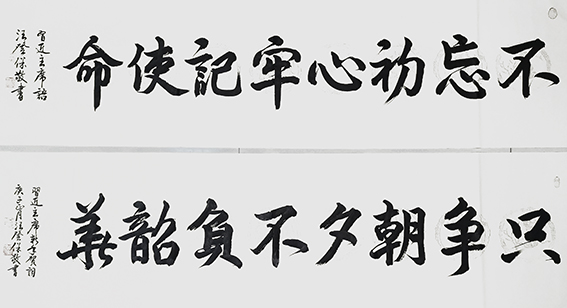 不忘初心牢記使命
習近主席語
汪登保敬書
只争朝夕不負韶華
習近主席新年賀詞
庚子正月汪登保敬書